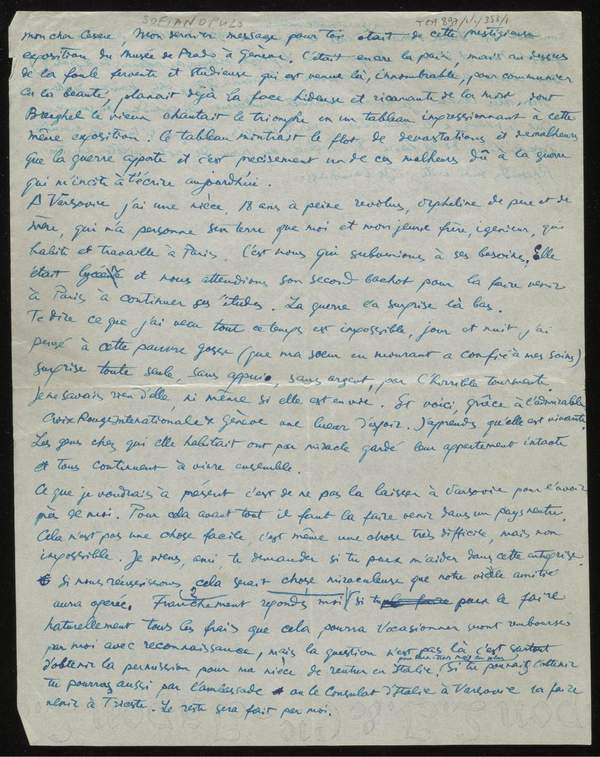 SOFIANOPULO
mon cher Cesare, Mon dernier message pour toi était de cette prestigieuse
exposition du Musée de Prado à Genève. C'était encore la paix, mais au dessus
de la foule fervente et studieuse qui est venue là, innombrable, pour communier
en la beauté, planait déjà la face hideuse et ricanante de la mort, dont
Breughel le vieux chantait le triomphe en un tableau impressionnant à cette
même exposition. Ce tableau montrait le flot de devastations et de malheurs
que la guerre apporte et c'est precisement un de ces malheurs dû à la guerre
qui m'incite à t'écrire aujourd'hui.
A Varsovie j'ai une nièce, 18 ans à peine revolus, orpheline de pere et de
mère, qui n'a personne sur terre que moi et mon jeune frère, igenieur, qui
habite et travaille à Paris. C'est nous qui subvenions à ses besoins. Elle
était et nous attendions son second bachot pour la faire venir
à Paris à continuer ses études. La guerre l'a surprise là bas.
Te dire ce que j'ai vecu tout ce temps est impossible, jour et nuit j'ai
pensé à cette pauvre gosse (que ma soeur en mourant a confiée à mes soins)
surprise toute seule, sans appui, sans argent, par l'horrible tourmente.
Je ne savais rien d'elle, ni même si elle est en vie. Et voici, grâce à l'admirable
Croix Rouge Internationale de Genève une lueur d'espoir. J'apprends qu'elle est vivante.
Les gens chez qui elle habitait ont par miracle gardé leur appartement intacte
et tous continuent à vivre ensemble.
Ce que je voudrais à présent c'est de ne pas la laisser à Varsovie pour l'avoir
près de moi. Pour cela avant tout il faut la faire venir dans un pays neutre.
Cela n'est pas une chose facile, c'est même une chose très difficile, mais non
impossible. Je viens, ami, te demander si tu peux m'aider dans cette entreprise.
Si nous reussissons, cela serait chose miraculeuse que notre vieille amitié
aura operée. Franchement reponds moi si tu peux le faire
naturellement tous les frais que cela pourra t'occasionner seront remboursés
par moi avec reconnaissance, mais la question n'est pas là, c'est surtout
d'obtenir la permission pour ma nièce de rentrer en Italie. Si tu pouvais l'obtenir
tu pourras aussi par l'ambassade ou le Consulat d'Italie à Varsovie la faire
venir à Trieste. Le reste sera fait par moi.